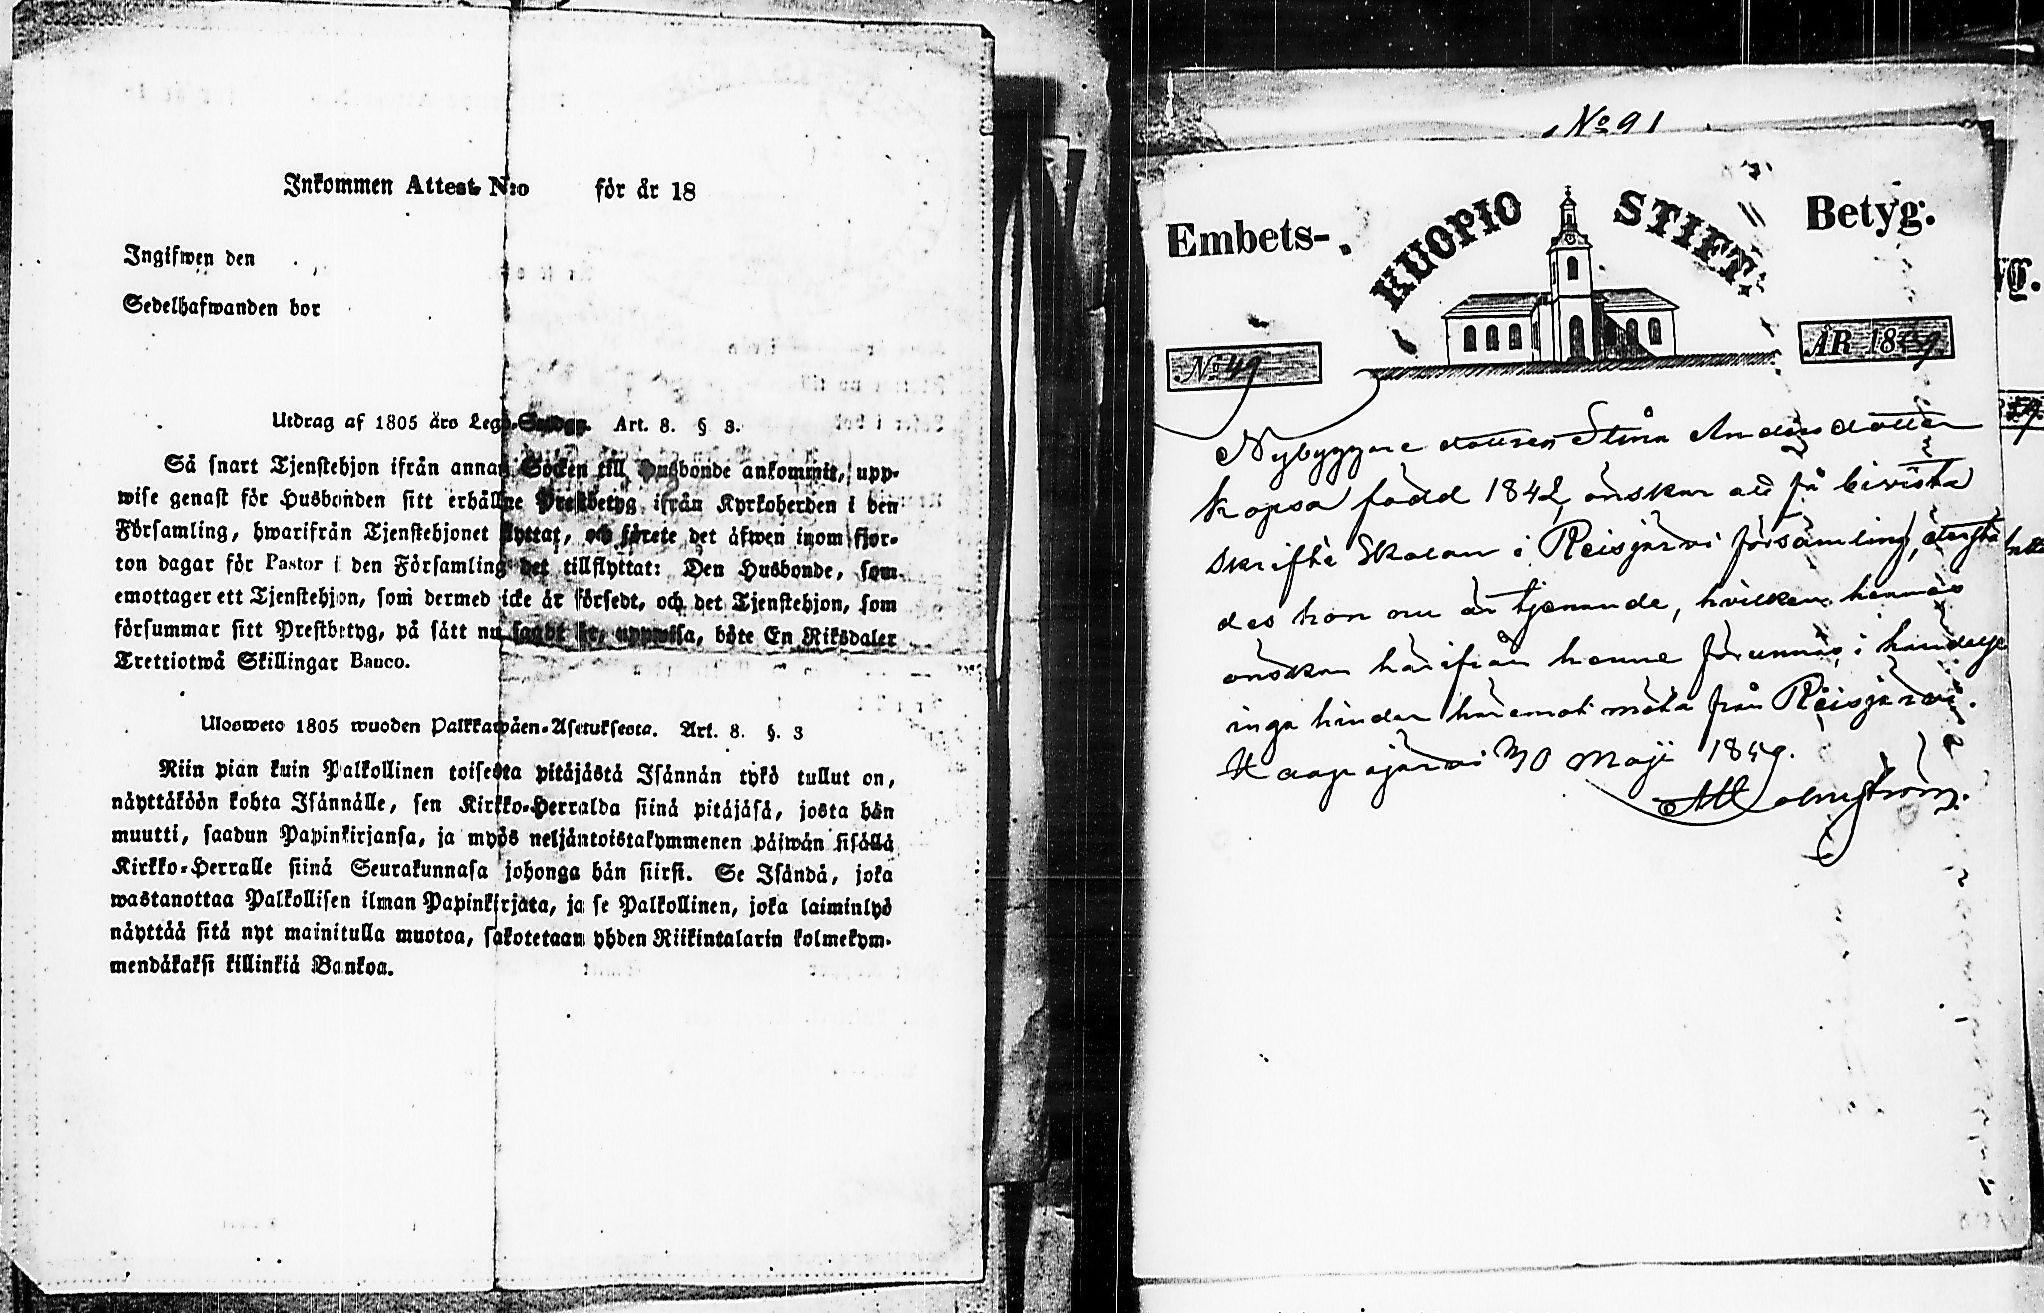 Inkommen Attest N:o för år 18
Ingifwen den
Sedelhafwanden bor
Utdrag af 1805 års Lego-Stadga. Art. 8. § 3.
Så snart Tjenstehjon ifrån annan Socken till Husbonde ankommit, upp-
wise genast för Husbonden sitt erhållne Prestbetyg ifrån Kyrkoherden i den
Församling, hwarifrån Tjenstehjonet flyttat, och förete det äfwen inom fjor-
ton dagar för Pastor i den Församling det tillflyttat: Den Husbonde, som
emottager ett Tjenstehjon, som dermed icke är försedt, och det Tjenstehjon, som
försummar sitt Prestbetyg, på sätt nu sagdt är, uppwisa, böte En Riksdaler
Trettiotwå Skillingar Banco.
Ulosweto 1805 wuoden Palkkawäen-Asetuksesta. Art. 8. §. 3
Niin pian kuin Palkollinen toisesta pitäjästä Isännän tykö tullut on,
näyttäköön kohta Isännälle, sen Kirkko-Herralda siinä pitäjäsä, josta hän
muutti, saadun Papinkirjansa, ja myös neljäntoistakymmenen päiwän sisällä
Kirkko-Herralle siinä Seurakunnasa johonga hän siirsi. Se Isändä, joka
wastanottaa Palkollisen ilman Papinkirjata, ja se Palkollinen, joka laiminlyö
näyttää sitä nyt mainitulla muotoa, sakotetaan yhden Riikintalarin kolmekym-
mendäkaksi killinkiä Bankoa.
No 91
Embets- KUOPIO STIFT. Betyg.
No 49 ÅR 1859.
Nybyggare dottren Stina Andersdotter
Kopsa född 1842, önskar att få bevista
skrifte Skolan i Reisjärvi församling,
des hon nu är tjenande, hvilken hennes
önskan härifrån henne förunnas, i händelse
inga hinder häremot möta från Reisjärvi.
Haapajärvi 30 Maji 1859.